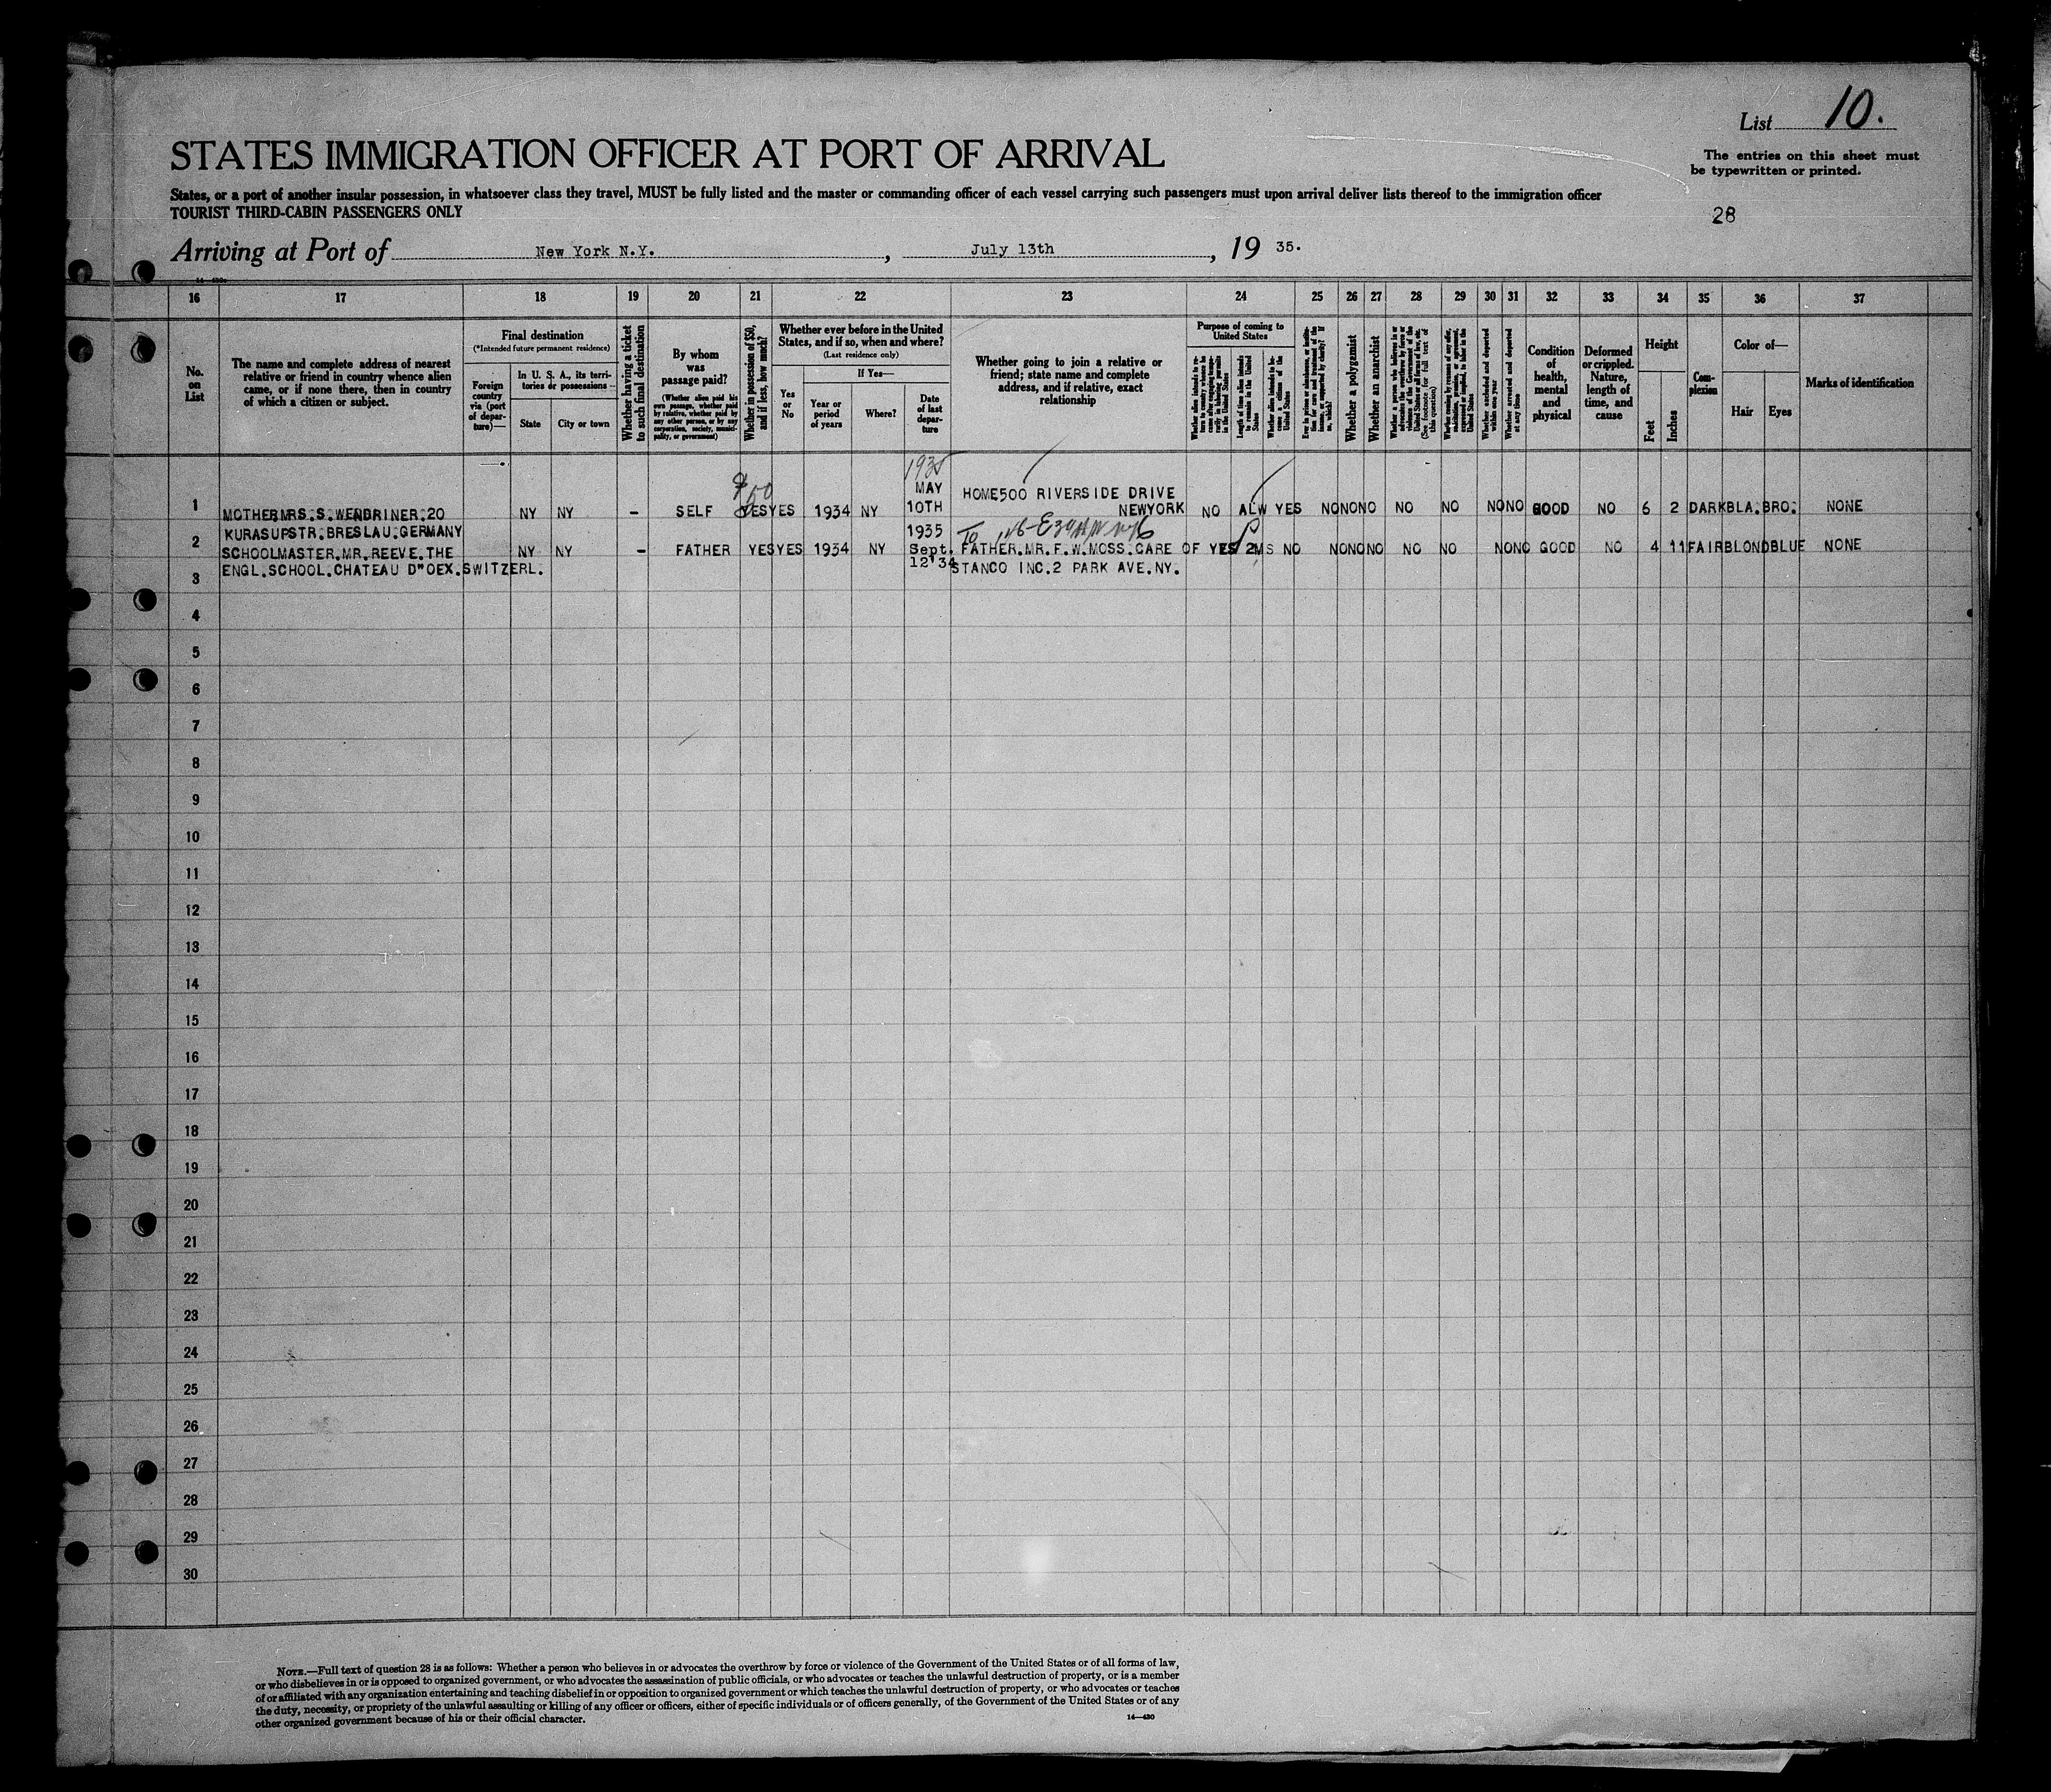 List 10.
STATES IMMIGRATION OFFICER AT PORT OF ARRIVAL
The entries on this sheet must
be typewritten or printed.
States, or a port of another insular possession, in whatsoever class they travel, MUST be fully listed and the master or commanding officer of each vessel carrying such passengers must upon arrival deliver lists thereof to the immigration officer
TOURIST THIRD-CABIN PASSENGERS ONLY
28
Arriving at Port of New York N.Y. , July 13th , 19 35.
16 17 18 19 20 21 22 23 24 25 26 27 28 29 30 31 32 33 34 35 36 37
No.
on
List
The name and complete address of nearest
relative or friend in country whence alien
came, or if none there, then in country
of which a citizen or subject.
Final destination
(*Intended future permanent residence)
Foreign
country
via (port
of depar-
ture)—
In U. S. A., its terri-
tories or possessions—
State
City or town
Whether having a ticket
to such final destination
By whom
was
passage paid?
(Whether alien paid his
own passage, whether paid
by relative, whether paid by
any other person, or by any
corporation, society, munici-
pality, or government)
Whether in possession of $50,
and if less, how much?
Whether ever before in the United
States, and if so, when and where?
(Last residence only)
Yes
or
No
If Yes—
Year or
period
of years
Where?
Date
of last
depar-
ture
Whether going to join a relative or
friend; state name and complete
address, and if relative, exact
relationship
Purpose of coming to
United States
Length of time alien intends
to remain in the United
States
Whether alien intends to be-
come a citizen of the
United States
Whether a polygamist
Whether an anarchist
Whether arrested and deported
within one year
Whether arrested and deported
at any time
Condition
of
health,
mental
and
physical
Deformed
or crippled.
Nature,
length of
time, and
cause
Height
Feet
Inches
Com-
plexion
Color of—
Hair
Eyes
Marks of identification
1 MOTHER MRS.S.WENDRINER.20 NY NY - SELF $60 YES YES 1934 NY 1935 MAY 10TH 1935 HOME500 RIVERSIDE DRIVE NEWYORK NO ALW YES NO NO NO NO NO NO NO GOOD NO 6 2 DARK BLA. BRO. NONE
KURASUPSTR.BRESLAU.GERMANY
2 SCHOOLMASTER.MR.REEVE.THE NY NY - FATHER YES YES 1934 NY Sept. 12'34 FATHER.MR.F.W.MOSS.CARE OF YES 2MS NO NO NO NO NO NO NO NO GOOD NO 4 11 FAIR BLOND BLUE NONE
ENGL.SCHOOL.CHATEAU D"OEX.SWITZERL. STANCO INC.2 PARK AVE.NY.
3
4
5
6
7
8
9
10
11
12
13
14
15
16
17
18
19
20
21
22
23
24
25
26
27
28
29
30
NOTE.—Full text of question 28 is as follows: Whether a person who believes in or advocates the overthrow by force or violence of the Government of the United States or of all forms of law,
or who disbelieves in or is opposed to organized government, or who advocates the assassination of public officials, or who advocates or teaches the unlawful destruction of property, or is a member
of or affiliated with any organization entertaining and teaching disbelief in or opposition to organized government or which teaches the unlawful destruction of property, or who advocates or teaches
the duty, necessity, or propriety of the unlawful assaulting or killing of any officer or officers, either of specific individuals or of officers generally, of the Government of the United States or of any
other organized government because of his or their official character.
14—430